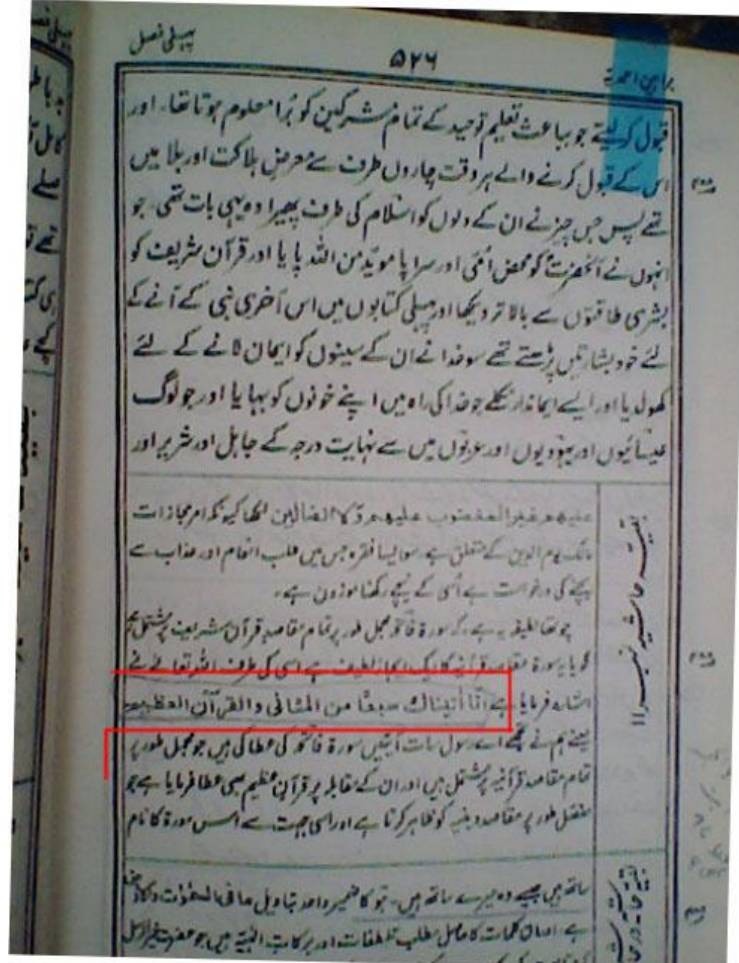 پہلی فصل
۵۲۶
براہین احمدیہ
قبول کر لیتے جو بباعث تعلیم توحید کے تمام مشرکین کو بُرا معلوم ہوتا تھا۔ اور
اس کے قبول کرنے والے ہر وقت چاروں طرف سے معرض ہلاکت اور بلا میں
تھے پس جس چیز نے ان کے دلوں کو اسلام کی طرف پھیرا وہ یہی بات تھی۔ جو
انہوں نے آنحضرتؐ کو محض اُمّی اور سراپا مویّد من اللہ پایا اور قرآن شریف کو
بشری طاقتوں سے بالاتر دیکھا اور پہلی کتابوں میں اس آخری نبی کے آنے کے
لئے خود بشارتیں پڑھتے تھے سو خدا نے ان کے سینوں کو ایمان لانے کے لئے
کھول دیا اور ایسے ایماندار نکلے جو خدا کی راہ میں اپنے خونوں کو بہایا اور جو لوگ
عیسائیوں اور یہودیوں اور عربوں میں سے نہایت درجہ کے جاہل اور شریر اور
بقیہ حاشیہ نمبر ۱۱
علیھم غیر المغضوب علیھم ولا الضالین لکھا کیونکہ امر مجازات
مالک یوم الدین کے متعلق ہے سو ایسا فقرہ جس میں طلب انعام اور عذاب سے
بچنے کی درخواست ہے اُسی کے نیچے رکھنا موزون ہے۔
چوتھا لطیفہ یہ ہے کہ سورۃ فاتحہ مجمل طور پر تمام مقاصد قرآن شریف پر مشتمل ہے
گویا یہ سورۃ مقاصد قرآنیہ کا ایک ایجاز لطیف ہے اسی کی طرف اللہ تعالیٰ نے
اشارہ فرمایا ہے انّا أتیناك سبعًا من المثانی والقرآن العظیم
یعنے ہم نے تجھے اے رسول سات آیتیں سورۃ فاتحہ کی عطا کی ہیں جو مجمل طور پر
تمام مقاصد قرآنیہ پر مشتمل ہیں اور ان کے مقابلہ پر قرآن عظیم بھی عطا فرمایا ہے جو
مفصل طور پر مقاصد دینیہ کو ظاہر کرتا ہے اور اسی جہت سے اس سورۃ کا نام
ساتھ ہیں جیسے وہ میرے ساتھ ہیں۔ ہو کا ضمیر واحد بتاویل ما فی السمٰوٰت والارض
ہے ان کلمات کا حاصل مطلب تلطفات اور برکات الٰہیہ ہیں جو حضرت خیر الرسل